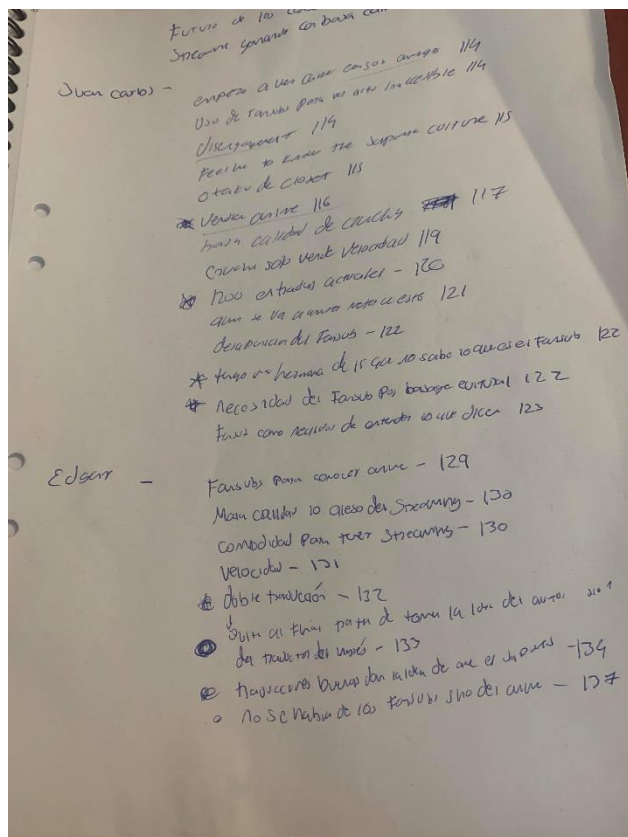 Futuro de los
Streaming ganando con baja cali
Juan Carlos - empezo a ver anime con sus amigos 114
Uso de fansubs para ver algo inaccesible 114
disengagement 114
Feeling to know the Japanese culture 115
otaku de closet 115
* Vendia anime 116
baja calidad de crunchy 117
Crunchy solo vende velocidad 119
* 1200 entradas actuales - 120
121
desaparicion del Fansub - 122
* tengo una hermana de 15 que no sabe lo que es el Fansub 122
* Necesidad del Fansub por bagage cultural 122
Fansub como necesidad de entender lo que dicen 123
Edgar - Fansubs para conocer anime - 129
Mala calidad lo queso del Streaming - 130
comodidad para tener Streaming - 130
Velocidad - 131
* doble traducción - 132
al final para de toma la idea del autor sino
del traductor del inglés - 133
traducciones buenas dan la idea de que es Japones - 134
no se habla de los fansubs sino del anime - 137